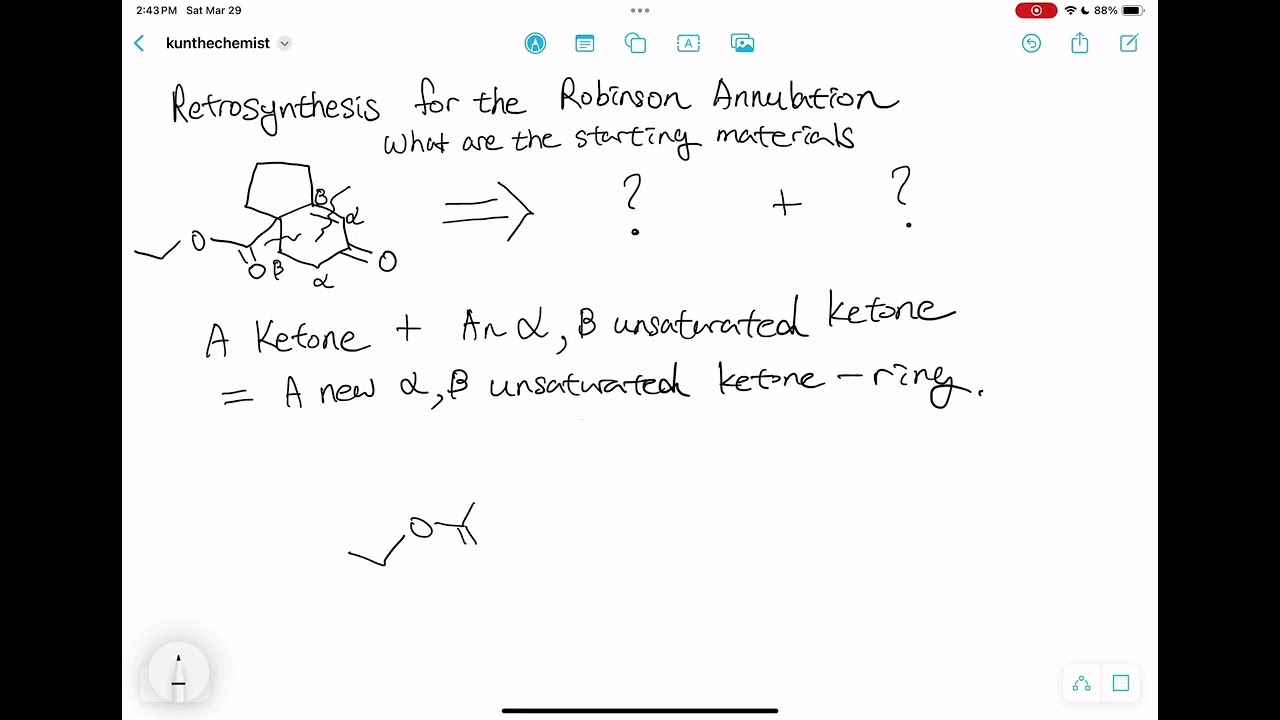 2:43 PM Sat Mar 29
88%
kunthechemist
A
Retrosynthesis for the Robinson Annulation
What are the starting materials
β
α
O
O
β
O
α
⇒ ? + ?
A Ketone + An α, β unsaturated ketone
= A new α, β unsaturated ketone – ring.
O